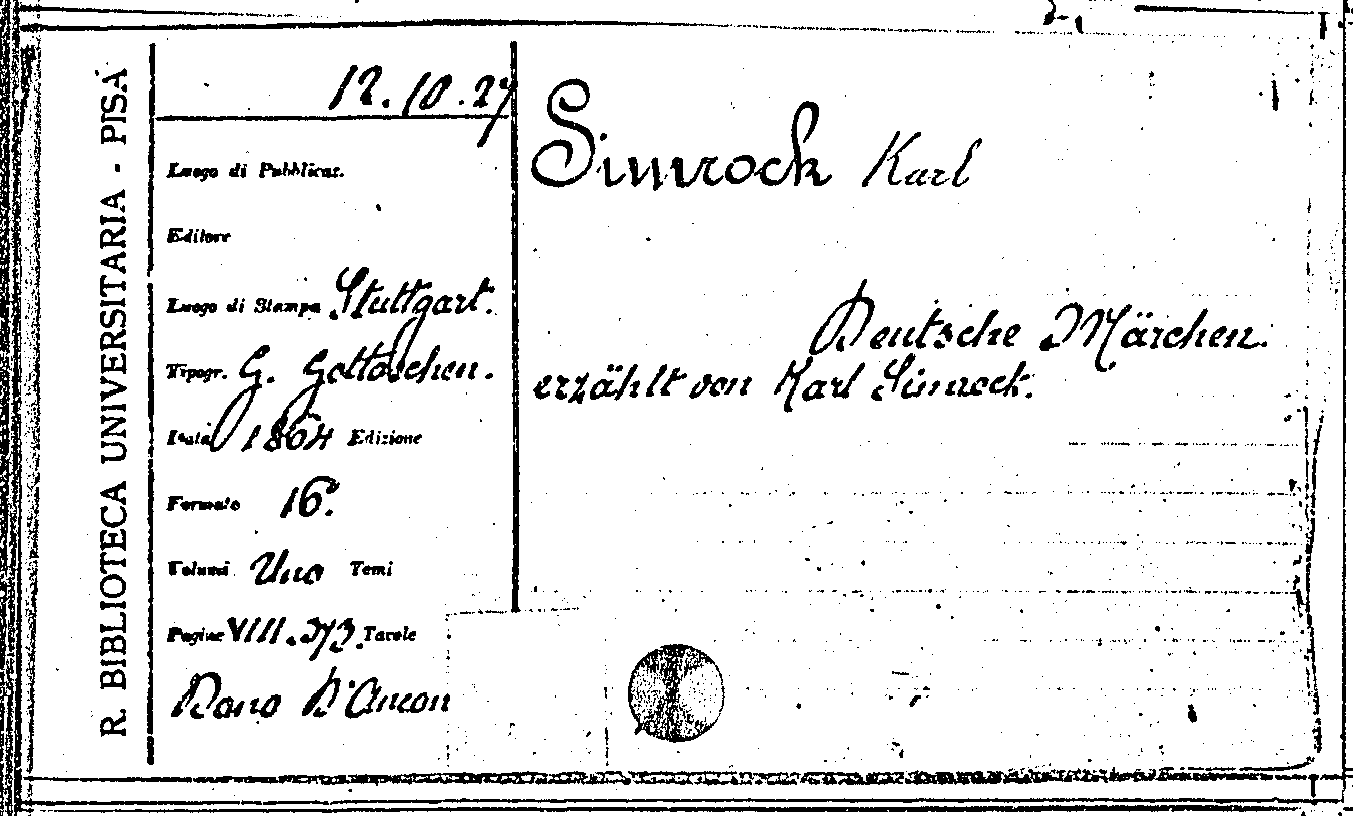 R. BIBLIOTECA UNIVERSITARIA - PISA
12.10.27
Luogo di Pubblicaz.
Editore
Luogo di Stampa Stuttgart.
Tipogr. G. Gottoschen.
Data 1864 Edizione
Formato 16°.
Volumi Uno Tomi
Pagine VIII. 373. Tavole
Dono D'Ancon
Simrock Karl
Deutsche Märchen.
erzählt von Karl Simrock.